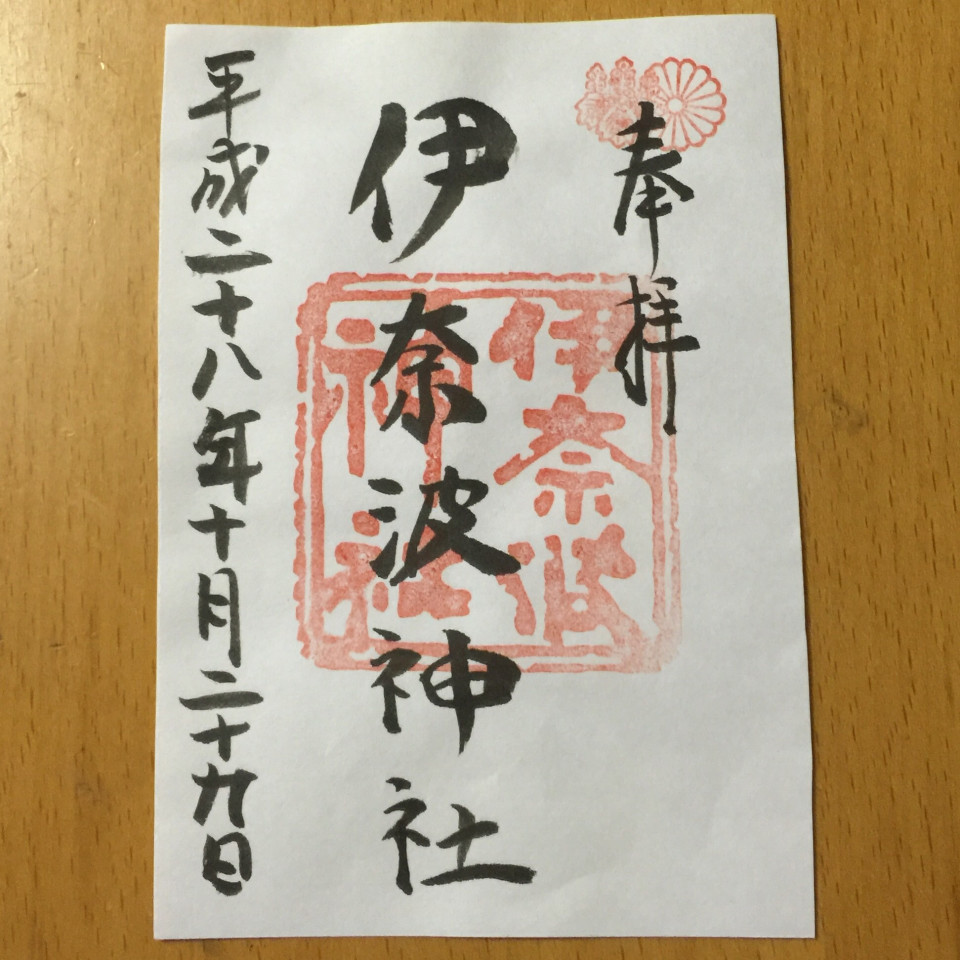 奉拝
伊奈波神社
伊奈波
神社
平成二十八年十月二十九日